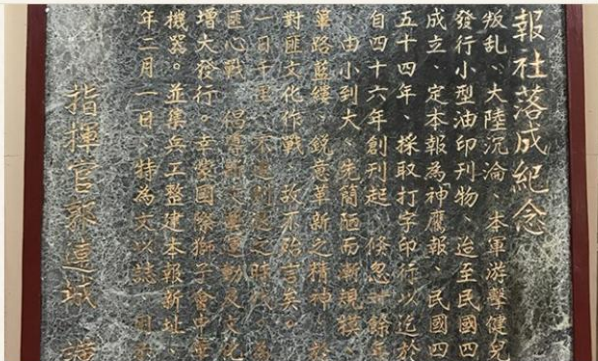 報社落成紀念
叛乱、大陸沉淪、本軍游擊健兒
發行小型油印刊物、迨至民國四
成立、定本報為神鷹報、民國四
五十四年、採取打字印行以迄於
自四十六年創刊起、倏忽廿餘年
由小到大、先簡陋而漸規模
篳路藍縷、銳意革新之精神
對匪文化作戰、敢不殆言矣。
一日千里、不進則退之時代、為
匪心戰、倡導新文藝運動及文化
增大發行。幸榮國際獅子會中華
機器。並集兵工整建本報新址
年二月一日、特為文以誌
指揮官郭運城